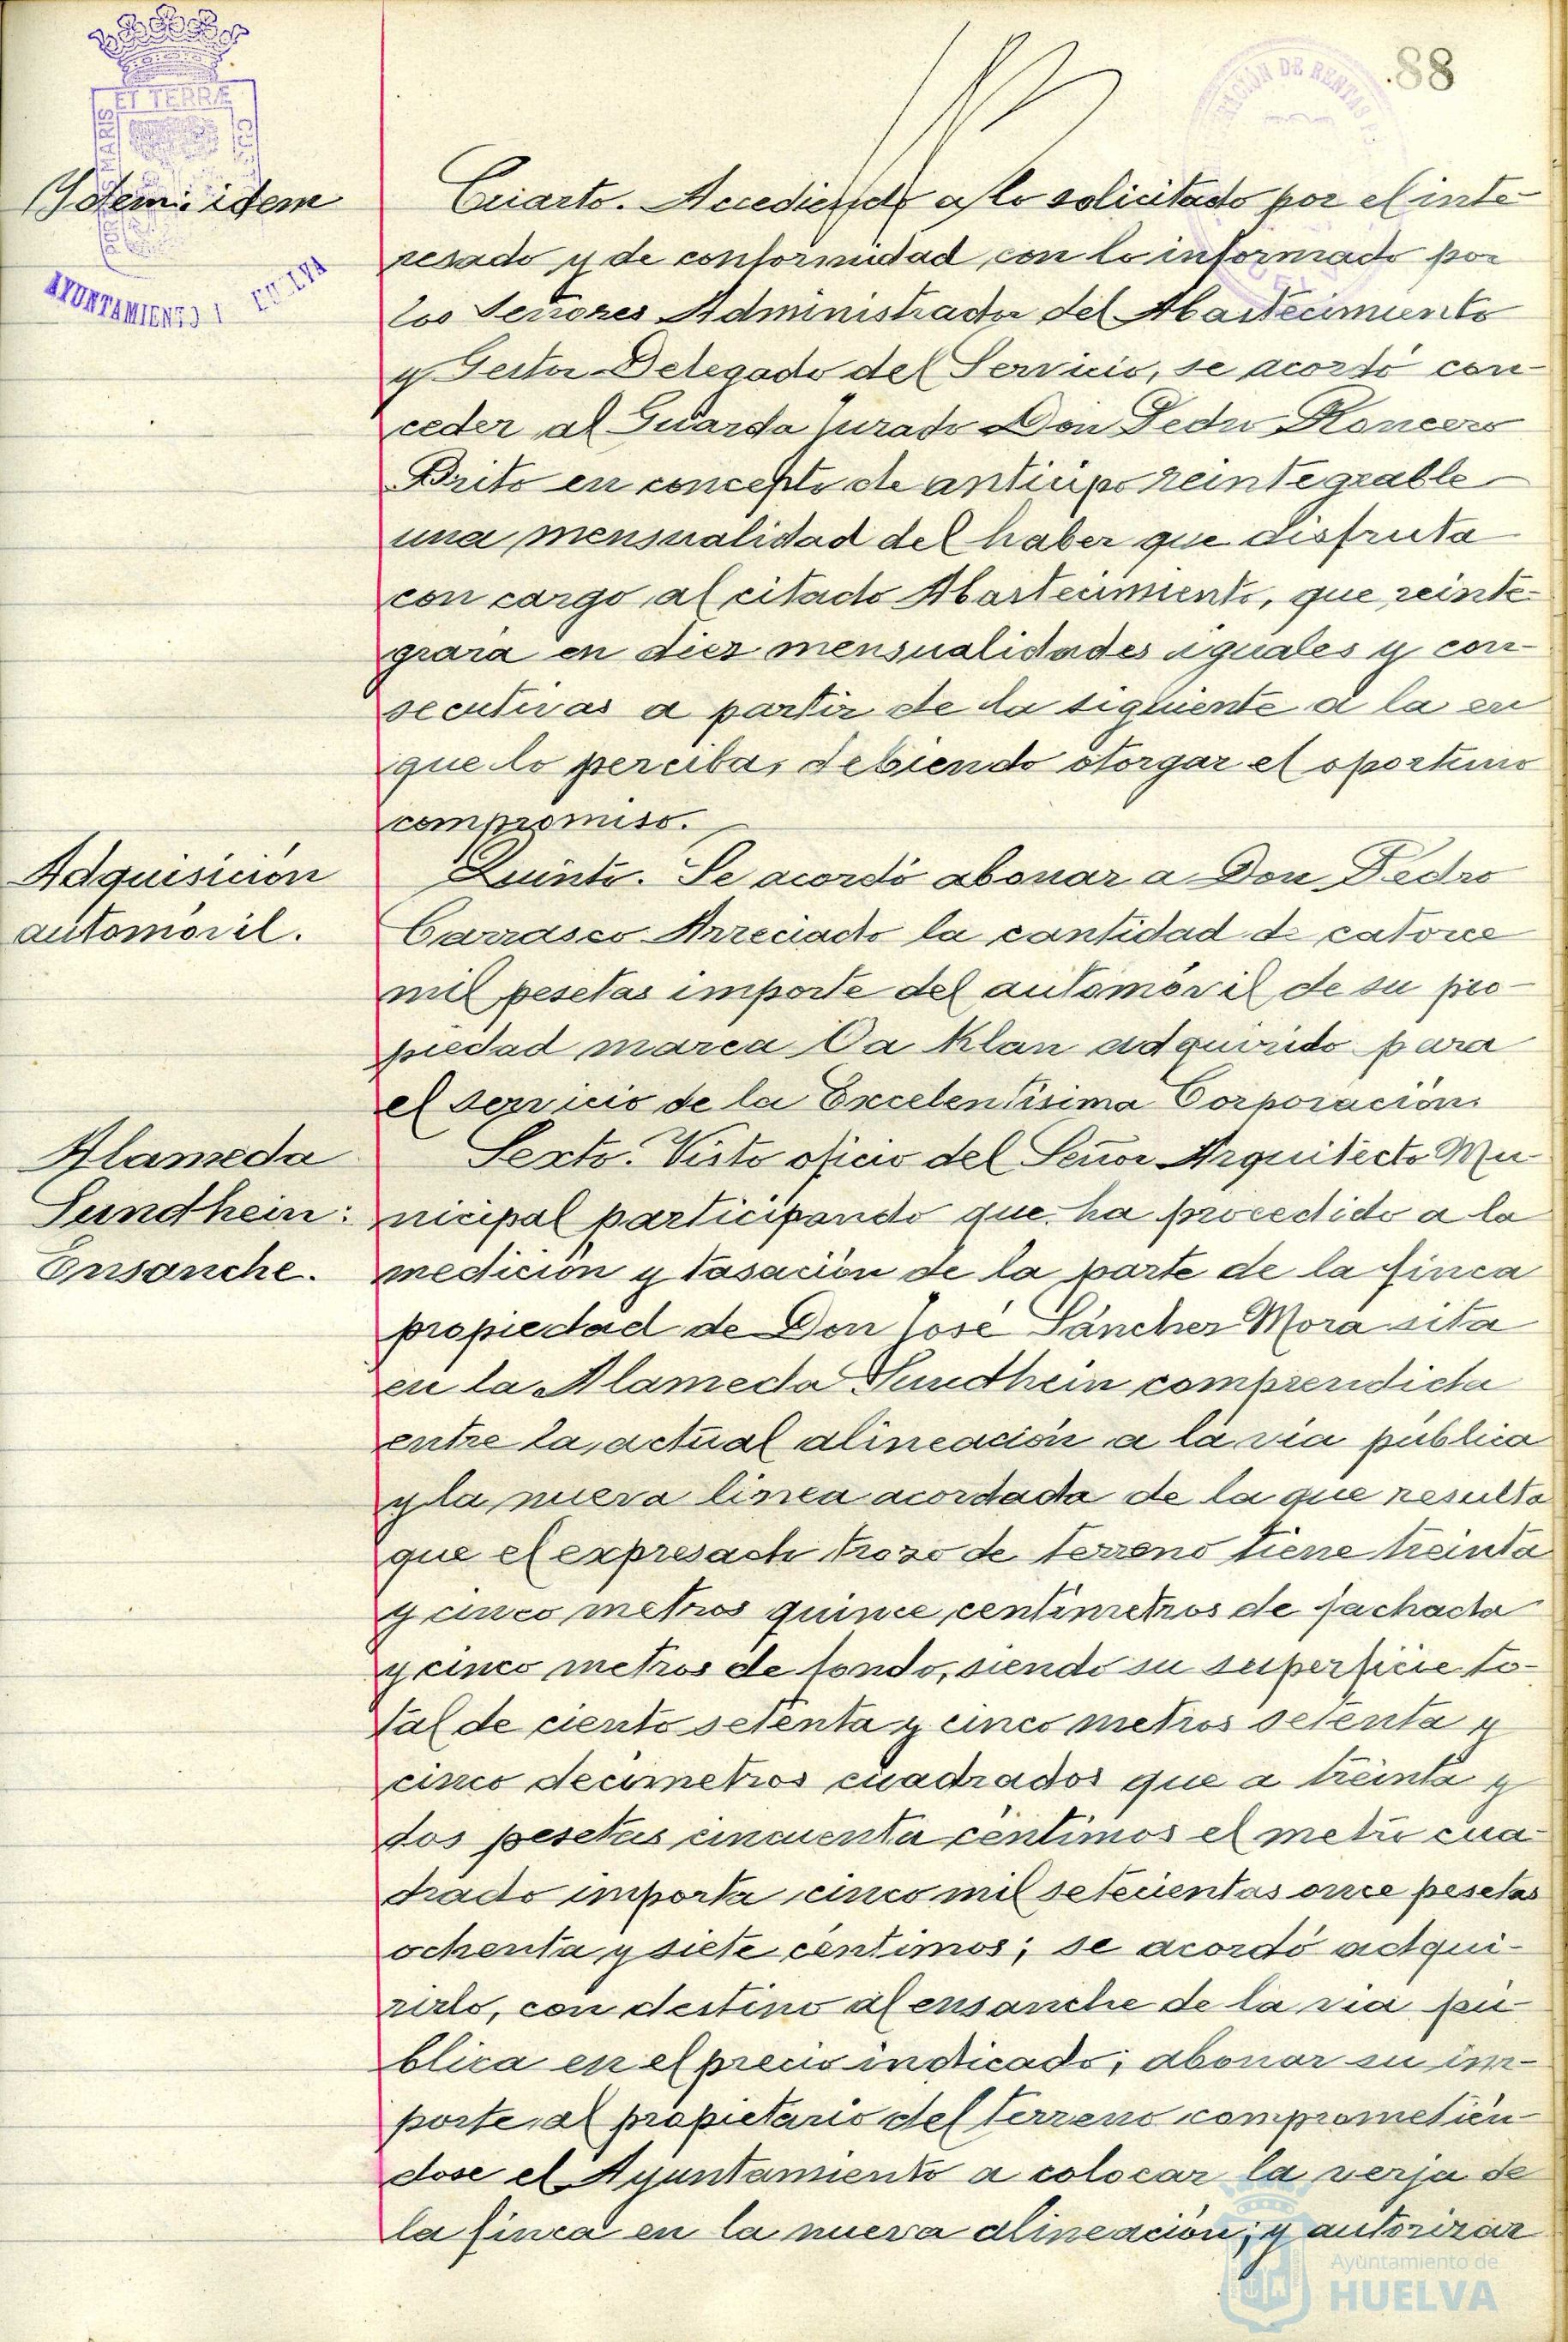 88
ET TERRÆ
MARIS
AYUNTAMIENTO HUELVA
Ytem: idem
Cuarto. Accediendo a lo solicitado por el inte-
resado y de conformidad con lo informado por
los Señores Administrador del Abastecimiento
y Gestor Delegado del Servicio, se acordó con-
ceder al Guarda Jurado Don Pedro Roncero
Brito en concepto de anticipo reintegrable
una mensualidad del haber que disfruta
con cargo al citado Abastecimiento, que reinte-
grará en diez mensualidades iguales y con-
secutivas a partir de la siguiente a la en
que lo perciba, debiendo otorgar el oportuno
compromiso.
Adquisición
automóvil.
Quinto. Se acordó abonar a Don Pedro
Carrasco Arreciado la cantidad de catorce
mil pesetas importe del automóvil de su pro-
piedad marca Oa Klan adquirido para
el servicio de la Excelentísima Corporación.
Alameda
Sundhein:
Ensanche.
Sexto. Visto oficio del Señor Arquitecto Mu-
nicipal participando que ha procedido a la
medición y tasación de la parte de la finca
propiedad de Don José Sánchez Mora sita
en la Alameda Sundhein comprendida
entre la actual alineación a la vía pública
y la nueva línea acordada de la que resulta
que el expresado trozo de terreno tiene treinta
y cinco metros quince centímetros de fachada
y cinco metros de fondo, siendo su superficie to-
tal de ciento setenta y cinco metros setenta y
cinco decímetros cuadrados que a treinta y
dos pesetas cincuenta céntimos el metro cua-
drado importa cinco mil setecientas once pesetas
ochenta y siete céntimos; se acordó adqui-
rirlo, con destino al ensanche de la vía pú-
blica en el precio indicado; abonar su im-
porte al propietario del terreno comprometién-
dose el Ayuntamiento a colocar la verja de
la finca en la nueva alineación; y autorizar
Ayuntamiento de
HUELVA